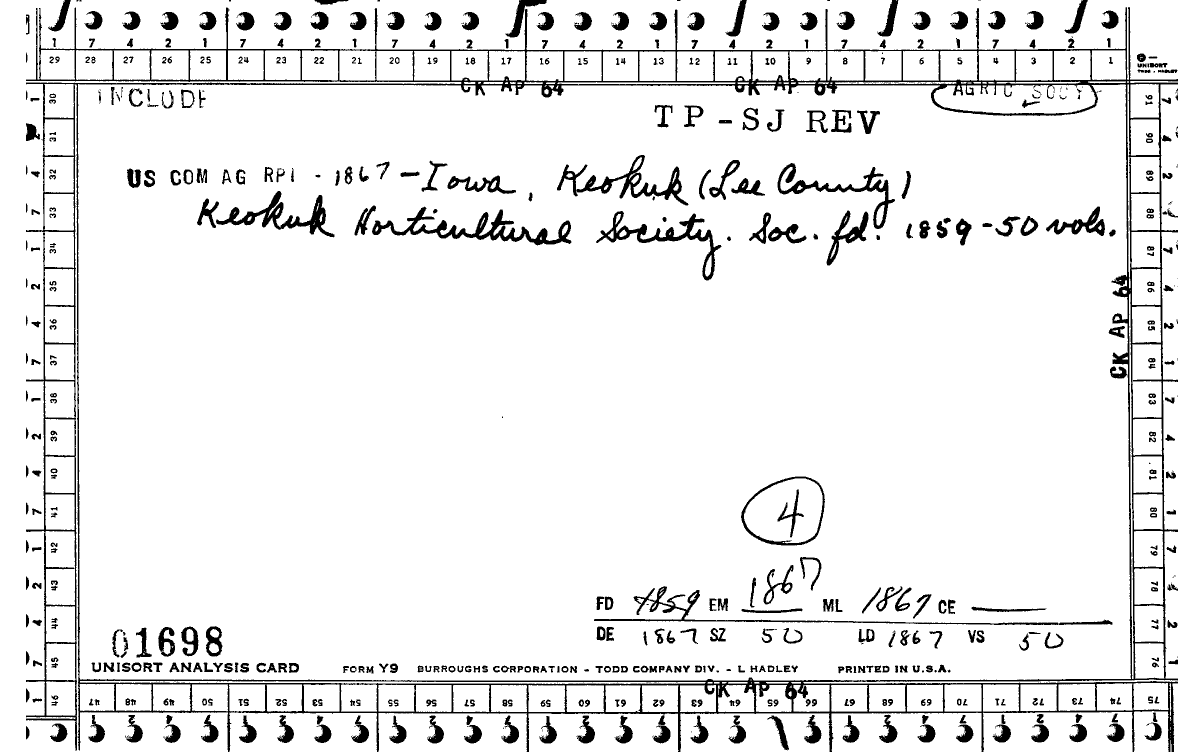 1 7 4 2 1 7 4 2 1 7 4 2 1 7 4 2 1 7 4 2 1 7 4 2 1 7 4 2 1
29 28 27 26 25 24 23 22 21 20 19 18 17 16 15 14 13 12 11 10 9 8 7 6 5 4 3 2 1
UNISORT
TODD - HADLEY
CK AP 64 CK AP 64
INCLUDE AGRIC SOCY
TP-SJ REV
US COM AG RPT - 1867 - Iowa, Keokuk (Lee County)
Keokuk Horticultural Society. Soc. fd. 1859 - 50 vols.
CK AP 64
4
FD 1859 EM 1867 ML 1867 CE
DE 1867 SZ 50 LD 1867 VS 50
01698
UNISORT ANALYSIS CARD FORM Y9 BURROUGHS CORPORATION - TODD COMPANY DIV. - L HADLEY PRINTED IN U.S.A.
CK AP 64
30 31 32 33 34 35 36 37 38 39 40 41 42 43 44 45 46
47 48 49 50 51 52 53 54 55 56 57 58 59 60 61 62 63 64 65 66 67 68 69 70 71 72 73 74 75
91 90 89 88 87 86 85 84 83 82 81 80 79 78 77 76